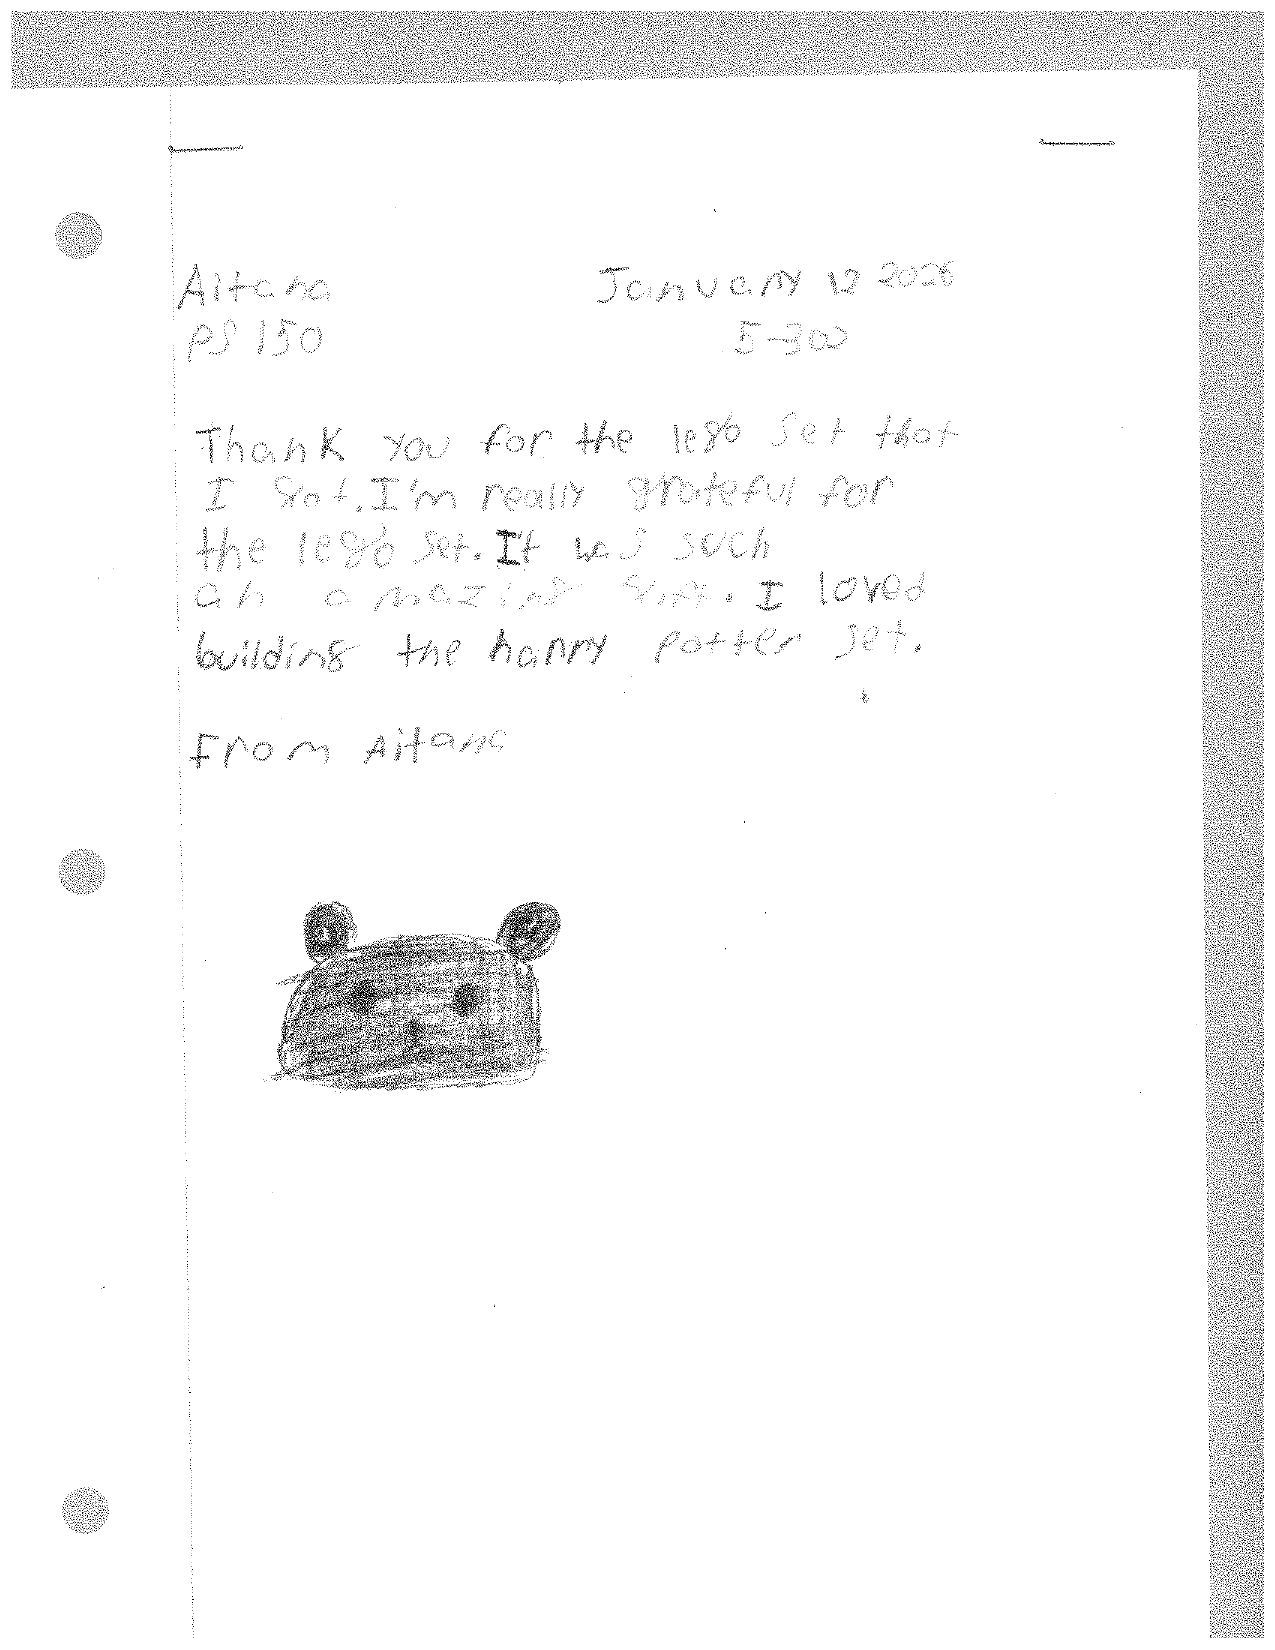 Aitana January 12 2026
PS 150 5-300
Thank you for the lego set that
I got. I'm really grateful for
the lego set. It was such
an amazing gift. I loved
building the harry potter set.
From Aitana